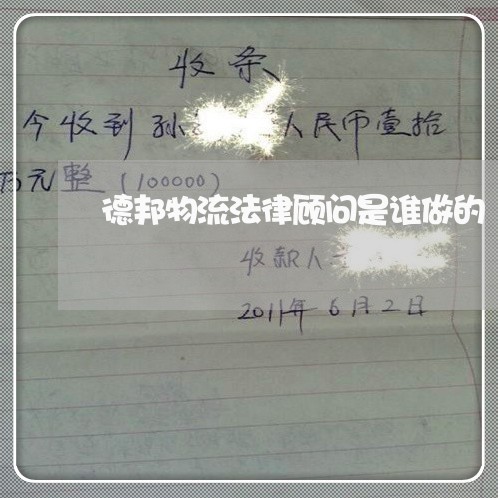 收条
今收到孙 人民币壹拾
万元整（100000）
德邦物流法律顾问是谁做的
收款人
2011年6月2日